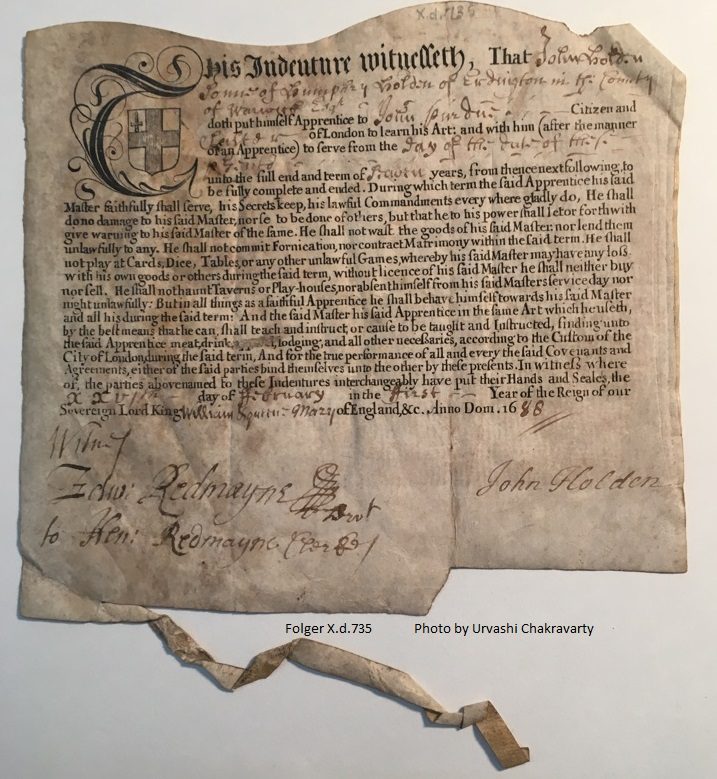 X.d.735
This Indenture witnesseth, That John Holden
Sonne of Humphry Holden of Erdington in the County
of Warwick Esqr
doth put himself Apprentice to John Purdue Citizen and
of London to learn his Art: and with him (after the manner
of an Apprentice) to serve from the day of the date of these
unto the full end and term of Seaven years, from thence next following, to
be fully complete and ended. During which term the said Apprentice his said
Master faithfully shall serve, his Secrets keep, his lawful Commandments every where gladly do, He shall
do no damage to his said Master, nor se to be done of others, but that he to his power shall let or forthwith
give warning to his said Master of the same. He shall not wast the goods of his said Master nor lend them
unlawfully to any. He shall not commit Fornication, nor contract Matrimony within the said term. He shall
not play at Cards, Dice, Tables, or any other unlawful Games, whereby his said Master may have any loss
with his own goods or others during the said term, without licence of his said Master he shall neither buy
nor sell. He shall not haunt Taverns or Play-houses, nor absent himself from his said Masters service day nor
night unlawfully: But in all things as a faithful Apprentice he shall behave himself towards his said Master
and all his during the said term: And the said Master his said Apprentice in the same Art which he useth,
by the best means that he can, shall teach and instruct, or cause to be taught and Instructed, finding unto
the said Apprentice meat, drink, lodging, and all other necessaries, according to the Custom of the
City of London, during the said term, And for the true performance of all and every the said Covenants and
Agreements, either of the said parties bind themselves unto the other by these presents. In witness where
of, the parties abovenamed to these Indentures interchangeably have put their Hands and Seales, the
day of February in the first Year of the Reign of our
Sovereign Lord King William & Queene Mary of England, &c. Anno Dom. 1688
Witnes
Edw: Redmayne
John Holden
to Hen: Redmayne Clerke
Folger X.d.735 Photo by Urvashi Chakravarty